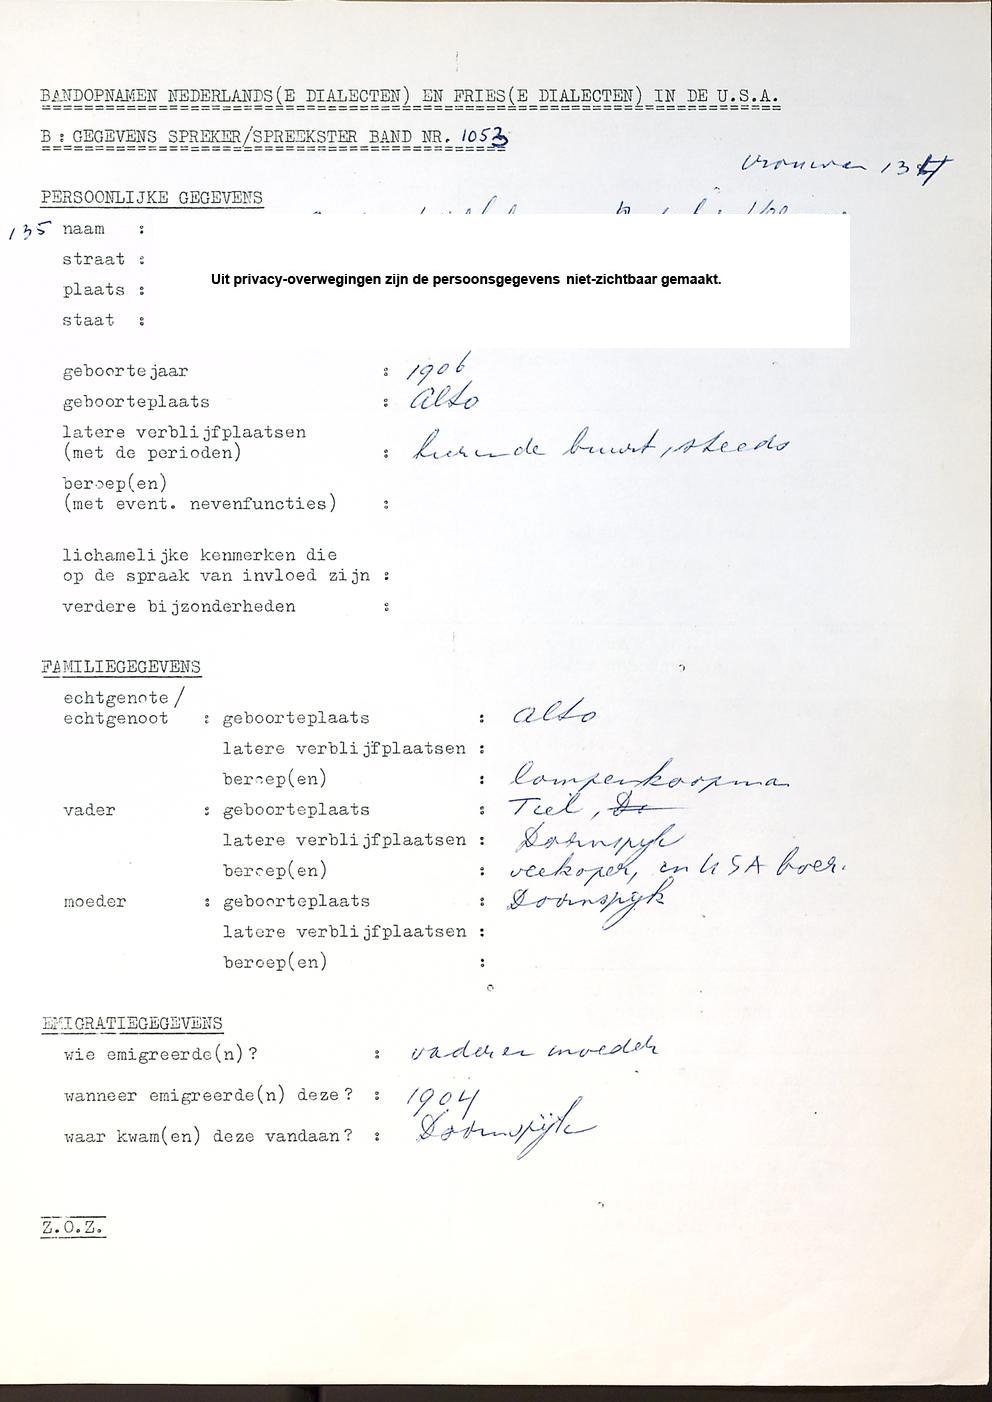 BANDOPNAMEN NEDERLANDS(E DIALECTEN) EN FRIES(E DIALECTEN) IN DE U.S.A.
B: GEGEVENS SPREKER/SPREEKSTER BAND NR. 1053
vrouwen 134
PERSOONLIJKE GEGEVENS
135 naam :
straat :
Uit privacy-overwegingen zijn de persoonsgegevens niet-zichtbaar gemaakt.
plaats :
staat :
geboortejaar : 1906
geboorteplaats : Alto
latere verblijfplaatsen
(met de perioden) : hier in de buurt, steeds
beroep(en)
(met event. nevenfuncties) :
lichamelijke kenmerken die
op de spraak van invloed zijn :
verdere bijzonderheden :
FAMILIEGEGEVENS
echtgenote/
echtgenoot : geboorteplaats : Alto
latere verblijfplaatsen :
beroep(en) : lompenkoopman
vader : geboorteplaats : Tiel, Do
latere verblijfplaatsen : Doornspijk
beroep(en) : veekoper, in USA boer.
moeder : geboorteplaats : Doornspijk
latere verblijfplaatsen :
beroep(en) :
EMIGRATIEGEGEVENS
wie emigreerde(n)? : vader en moeder
wanneer emigreerde(n) deze? : 1904
waar kwam(en) deze vandaan? : Doornspijk
Z.O.Z.